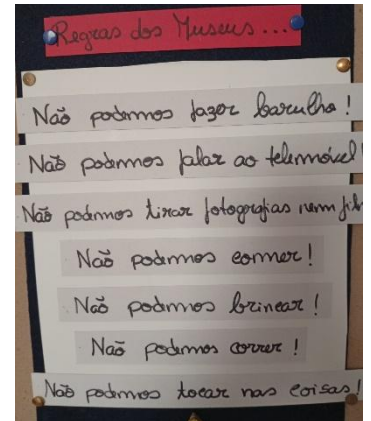 Regras dos Museus...
Não podemos fazer barulho!
Não podemos falar ao telemóvel!
Não podemos tirar fotografias nem
Não podemos comer!
Não podemos brincar!
Não podemos correr!
Não podemos tocar nas coisas!